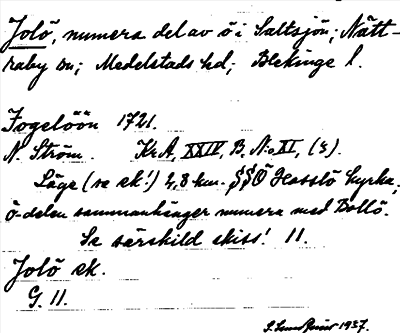 Jolö, numera del av ö i Saltsjön; Nätt-
raby sn; Medelstads hd; Blekinge l.
Jogelöön 1721.
N. Ström. KrA, XXIV, B, N:o XI, (3).
Läge (se ek!) 2,8 km. SSÖ Hasslö kyrka,
ö-delen sammanhänger numera med Bollö.
Se särskild skiss! 11.
Jolö ek.
G. 11.
1937.